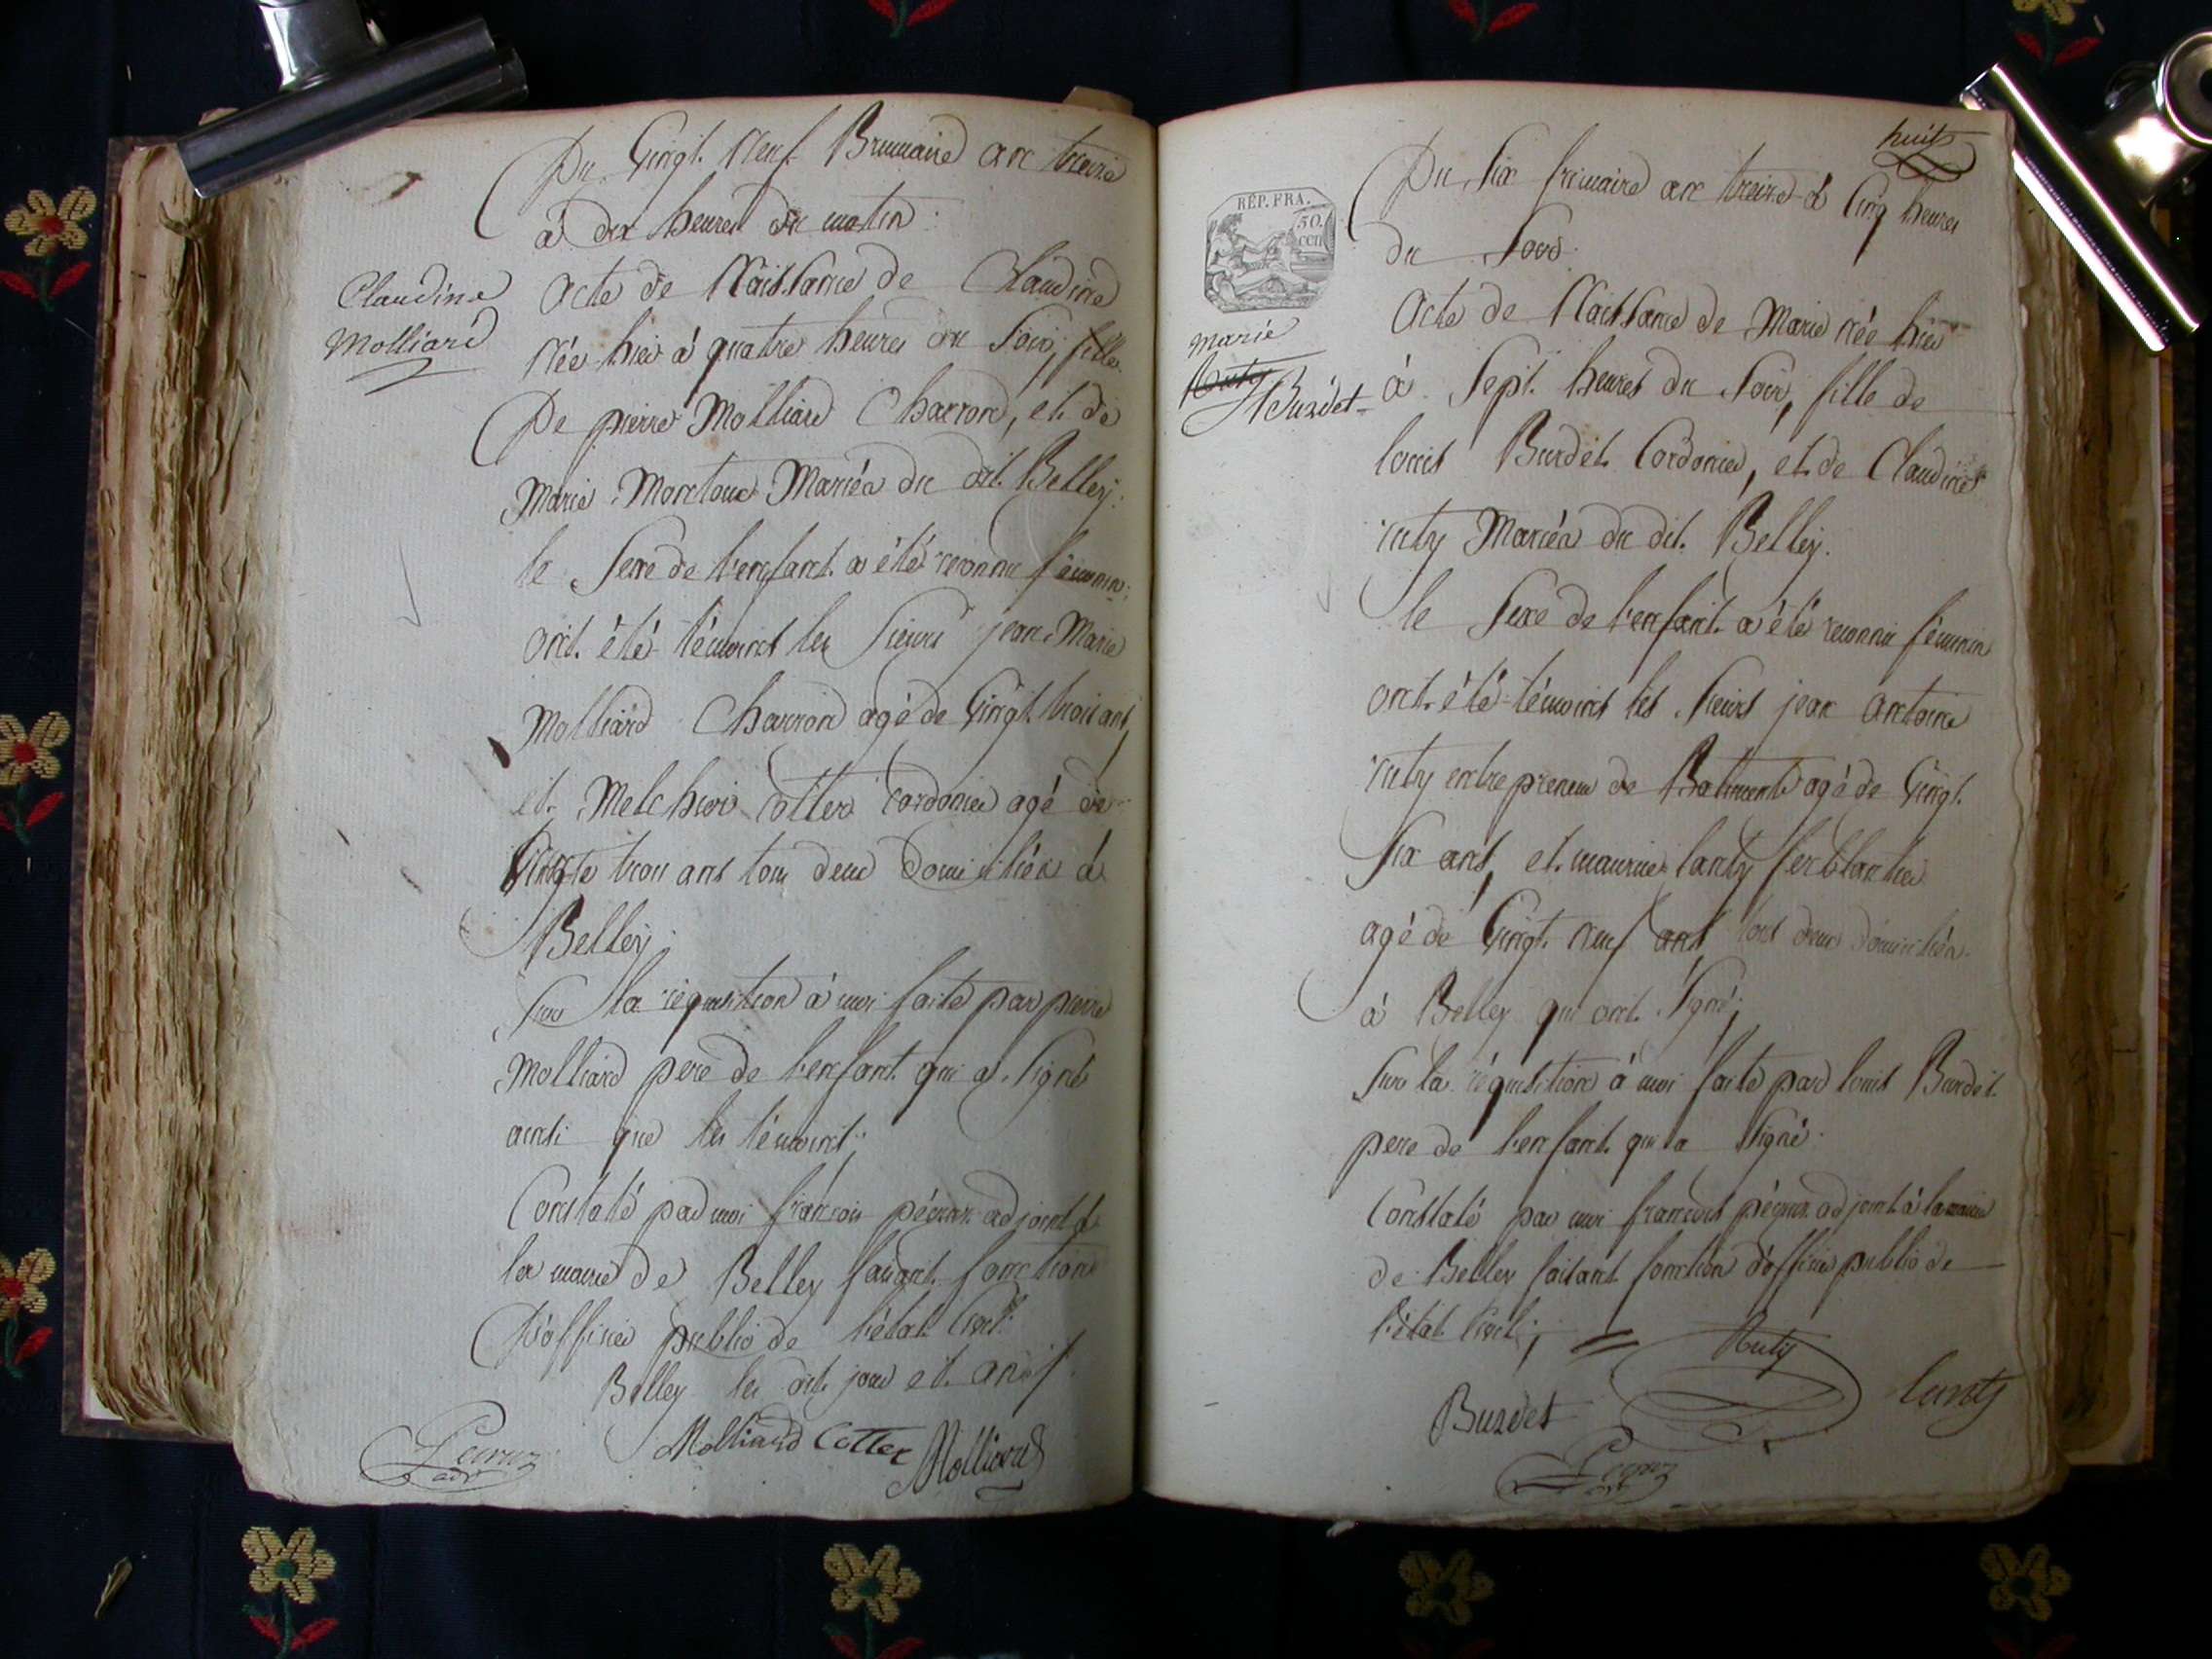 Du Vingt Neuf Brumaire an treize
à dix heures du matin
Claudine
Molliard
Acte de Naissance de Claudine
Née hier à quatre heures du Soir, fille
De pierre Molliard Charron, et de
Marie Mariés du dit Belley.
le Sexe de l'enfant a été reconnu féminin,
ont été témoins les Sieurs jean Marie
Molliard Charron agé de Vingt trois ans,
et Melchior Cotter Cordonier agé de
trois ans tous deux Domiciliés à
Belley.
Sur la réquisition à moi faite par pierre
Molliard pere de l'enfant qui a Signé
ainsi que les témoins;
Constaté par moi françois adjoint à
la mairie de Belley faisant fonction
D'officier public de l'état Civil.
Belley les dit jour et an
Molliard Cotter Molliard
adt
huit
RÉP. FRA.
50.
cen
Du Six frimaire an treize à Cinq heures
du Soir
marie
Ruty
Burdet
Acte de Naissance de Marie Née hier
à Sept heures du Soir, fille de
louis Burdet Cordonier, et de Claudine
ruty Mariés du dit Belley.
le Sexe de l'enfant a été reconnu féminin
ont été témoins les Sieurs jean antoine
ruty entrepreneur de Batiments agé de Vingt
Six ans, et maurice lanty ferblantier
agé de Vingt neuf ans tous deux domiciliés
à Belley qui ont Signé;
Sur la réquisition à moi faite par louis Burdet
pere de l'enfant qui a Signé.
Constaté par moi françois adjoint à la mairie
de Belley faisant fonction d'officier public de
l'état Civil;
Ruty
lanty
Burdet